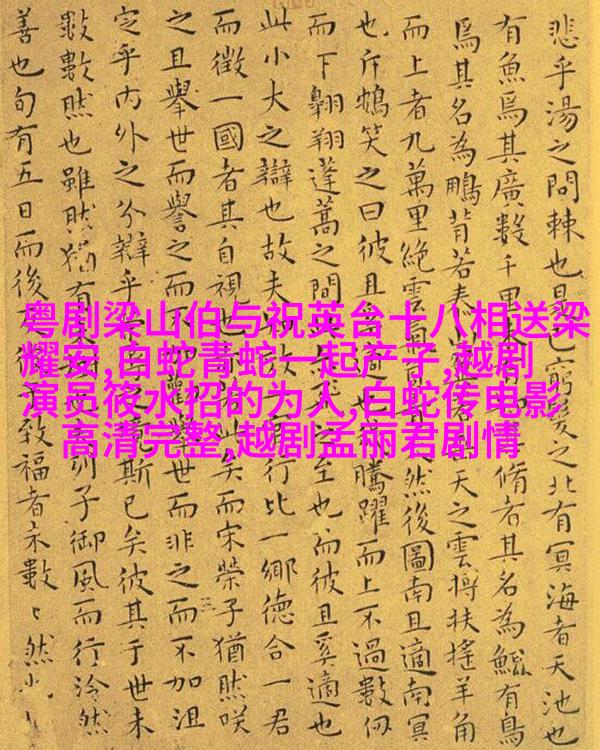 悲乎湯之問棘也是窮髮之北有冥海者天池也
有魚焉其廣數千里未脩者其名為鯤有鳥
焉其名為鵬背若泰天之雲摶扶搖羊角
而上者九萬里絕雲氣然後圖南且適南冥
也斥鴳笑之曰彼且騰躍而上不過數仞
而下翱翔蓬蒿之間之至也而彼且奚適也
此小大之辯也故夫行比一鄉德合一君
而徵一國者其自視也此矣而宋榮子猶然咲
之且舉世而譽之而不加勸而非之而不加沮
定乎內外之分辯乎斯已矣彼其于世未
數數然也雖然猶有列子御風而行泠然
善也旬有五日而後致福者未數〻然也
粤剧梁山伯与祝英台十八相送梁
耀安,白蛇青蛇一起产子,越剧
演员筱水招的为人,白蛇传电影
高清完整,越剧孟丽君剧情